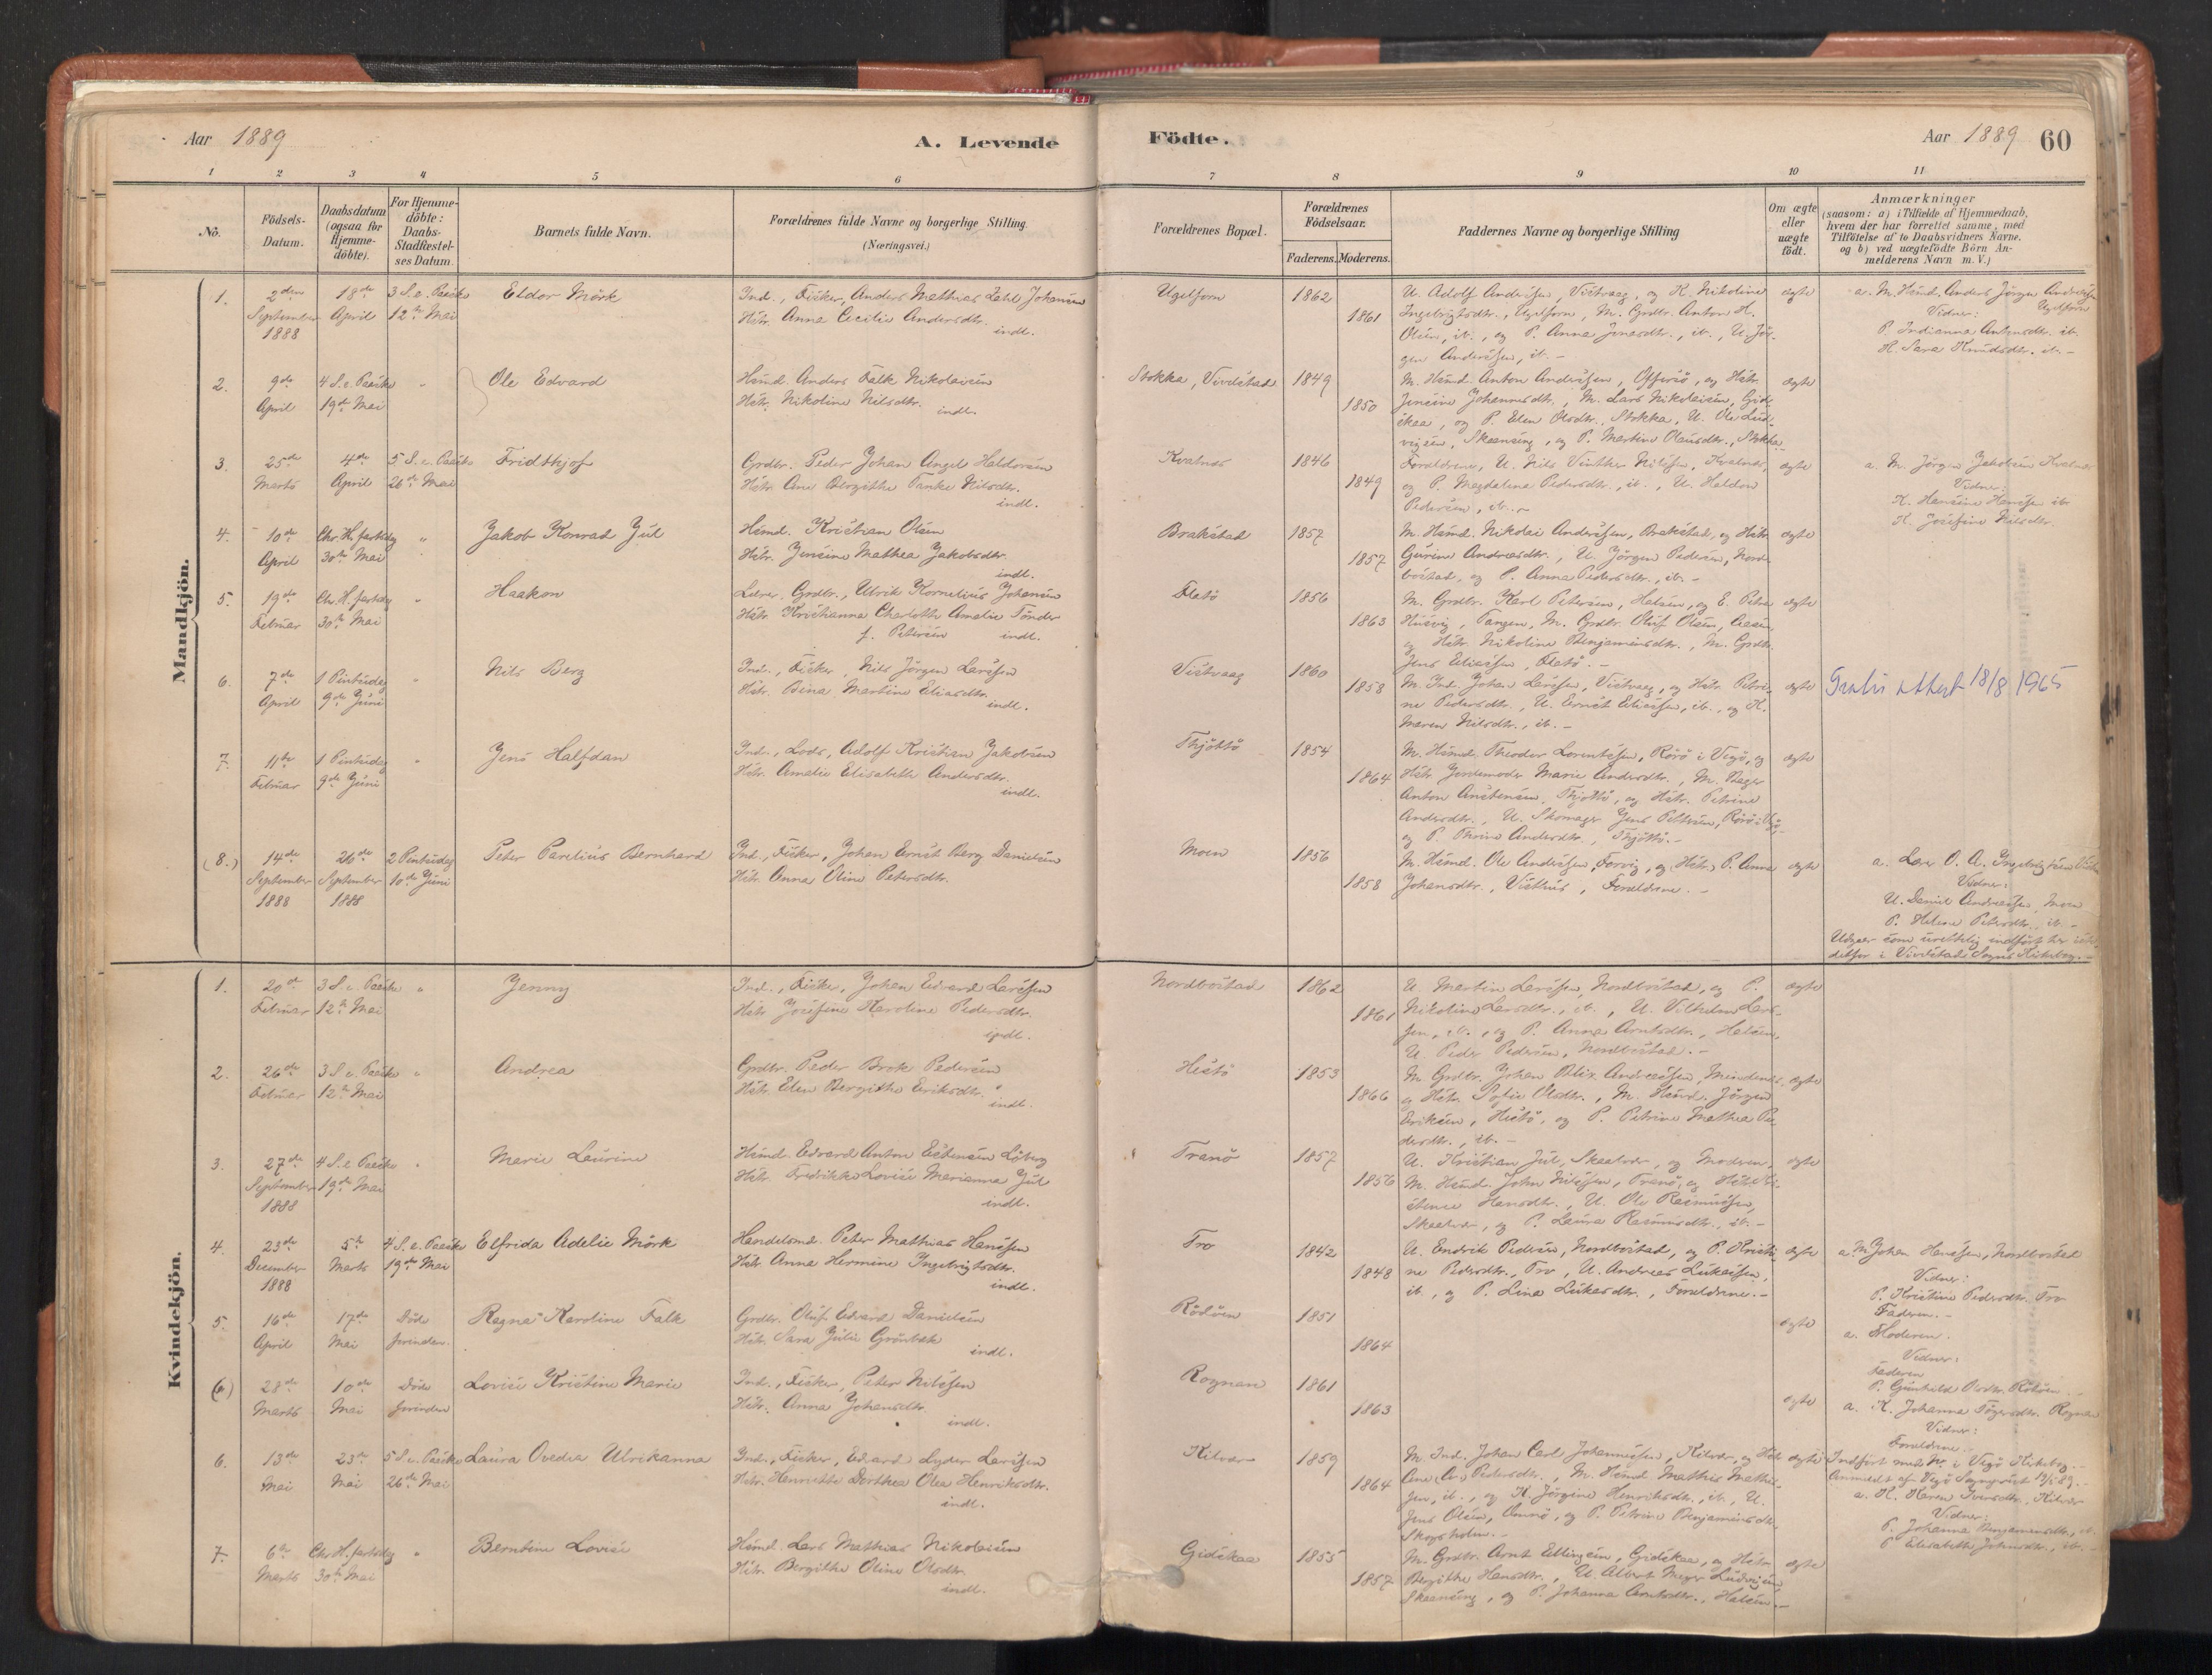 Aar 1889
A. Levende
Födte.
Aar 1889 60
1 2 3 4 5 6 7 8 9 10 11
No.
Födsels-
Datum.
Daabsdatum
(ogsaa for
Hjemme-
döbte).
For Hjemme-
döbte:
Daabs-
Stadfæstel-
ses Datum.
Barnets fulde Navn.
Forældrenes fulde Navne og borgerlige Stilling.
(Næringsvei.)
Forældrenes Bopæl.
Forældrenes
Födselsaar.
Faderens. Moderens.
Faddernes Navne og borgerlige Stilling
Om ægte
eller
uægte
födt.
Anmærkninger
(saasom: a) i Tilfælde af Hjemmedaab,
hvem der har forrettet samme, med
Tilföielse af to Daabsvidners Navne,
og b) ved uægtefödte Börn An-
melderens Navn m. V.)
Mandkjön.
1. 2den September 1888
18de April
3 S. e. Paaske 12te Mai
Eldor Mörk
Ind., Fisker, Anders Mathias Johansen
Hstr. Anna Cecilie Andersdtr.
indl.
1862
1861
U. Adolf Anderssen, Vistvaag, og K. Nikoline
Ingebrigtsdtr., M. Grdbr. Anton H.
Olsen, ib., og P. Anna Jensdtr., ib., U. Jör-
gen Anderssen, ib. -
ægte
a. M. Hsmd. Anders Jörgen Andreassen
Vidner:
P. Indianna Antonsdtr. ib.
K. Sara Knudsdtr. ib. -
2. 9de April
4 S. e. Paaske 19de Mai
Ole Edvard
Hsmd. Anders Falk Nikolaisen
Hstr. Nikoline Nilsdtr.
indl.
Stokka, Vivelstad
1849
1850
M. Hsmd. Anton Anderssen, Offersö, og Hstr.
Jensine Johannesdtr., M. Lars Nikolaisen, Gid-
skaa, og P. Elen Olsdtr., Stokka, U. Ole Lud-
vigsen, Skaanseng, og P. Martine Olausdtr., Stokka
ægte
3. 25de Marts
4de April
5 S. e. Paaske 26de Mai
Fridthjof
Grdbr. Peder Johan Angel Haldorsen
Hstr. Ane Bergithe Tanke Nilsdtr.
indl.
Kvalnes
1846
1849
Forældrene, U. Nils Vinther Nilssen, Kvalnes,
og P. Magdalena Pedersdtr., ib., U. Haldor
Pedersen, ib. -
ægte
a. M. Jörgen Jakobsen Kvalnes
Vidner:
K. Hansine Hanssen ib.
K. Josefine Nilsdtr.
4. 10de April
Chr. H. fartsdag 30te Mai
Jakob Konrad Jul
Hsmd. Kristian Olsen
Hstr. Jensine Mathea Jakobsdtr.
indl.
Brakstad
1857
1857
M. Hsmd. Nikolai Anderssen, Brakstad, og Hstr.
Gurine Andreasdtr., U. Jörgen Pedersen, Nord-
böstad, og P. Anna Pedersdtr., ib. -
ægte
5. 19de Februar
Chr. H. fartsdag 30te Mai
Haakon
Lærer, Grdbr., Ulrik Kornelius Johansen
Hstr. Kristianna Charlotte Amalie Tönder
f. Petersen indl.
Flatö
1856
1863
M. Grdbr. Karl Petersen, Halsen, og E. Petra
Husvig, Tangen, M. Grdbr. Oluf Olsen,
og Hstr. Nikoline Benjaminsdtr., M. Grdbr.
Jens Eliassen, Flatö. -
ægte
6. 7de April
1 Pintsedag 9de Juni
Nils Berg
Ind., Fisker, Nils Jörgen Larssen
Hstr. Bina Martine Eliasdtr.
indl.
Vistvaag
1860
1858
M. Ind. Johan Larssen, Vistvaag, og Hstr. Petri-
ne Pedersdtr., U. Ernst Eliassen, ib., og K.
Maren Nilsdtr., ib. -
ægte
Gratis attest 18/8 1965
7. 11te Februar
1 Pintsedag 9de Juni
Jens Halfdan
Ind., Lods, Adolf Kristian Jakobsen
Hstr. Amalie Elisabeth Andersdtr.
indl.
Thjöttö
1854
1864
M. Hsmd. Theodor Lorentssen, Rörö i Vegö, og
Hstr. Jordemoder Marie Andersdtr., M.
Anton Anstensen, Thjöttö, og Hstr. Petrine
Andersdtr., U. Skomager Jens Peltersen, Rörö i Vegö,
og P. Thrine Andersdtr., Thjöttö. -
ægte
(8.) 14de September 1888
26de September 1888
2 Pintsedag 10de Juni
Peter Parelius Bernhard
Ind., Fisker, Johan Ernst Berg Danielsen
Hstr. Anna Oline Petersdtr.
Moen
1856
1858
M. Hsmd. Ole Anderssen, Forvig, og (Hstr.) P. Anna
Johansdtr., Visthus, Forældrene. -
ægte
a. Lærer O. A. Ingebrigtsen
Vidner:
U. Daniel Andreassen, Moen
P. Helene Petersdtr., ib. -
Udgaar som urettelig indfört her
i Vivelstad Sogns Kirkebog. -
Kvindekjön.
1. 20de Februar
3 S. e. Paaske 12te Mai
Jenny
Ind., Fisker, Johan Edvard Larssen
Hstr. Josefine Karoline Pedersdtr.
indl.
Nordböstad
1862
1861
U. Martin Larssen, Nordböstad, og P.
Nikoline Larsdtr., ib., U. Vilhelm Lars-
sen, ib., og P. Anna Arntsdtr., Halsen,
U. Peder Pedersen, Nordböstad. -
ægte
2. 26de Februar
3 S. e. Paaske 12te Mai
Andrea
Grdbr. Peder Brok Pedersen
Hstr. Elen Bergithe Eriksdtr.
indl.
Hestö
1853
1866
M. Grdbr. Johan Blix Andreassen, Mindenes,
og Hstr. Sofie Olsdtr., M. Hsmd. Jörgen
Eriksen, Hestö, og P. Petrine Mathea Pe-
dersdtr., ib. -
ægte
3. 27de September 1888
4 S. e. Paaske 19de Mai
Marie Laurine
Hsmd. Edvard Anton Estensen Liberg
Hstr. Fredrikke Lovise Marianna Jul
indl.
Tranö
1857
1856
U. Kristian Jul, Skaalvær, og Moderen,
M. Hsmd. John Nilssen, Tranö, og Hstr.
Hansdtr., U. Ole Rasmussen,
Skaalvær, og P. Laura Rasmusdtr., ib. -
ægte
4. 23de December 1888
5te Marts
4 S. e. Paaske 19de Mai
Elfrida Adelie Mörk
Handelsmd. Peter Mathias Hanssen
Hstr. Anna Hermine Ingebrigtsdtr.
indl.
Tro
1842
1848
U. Endrik Pedersen, Nordböstad, og P. Kristi-
ne Pedersdtr., Tro, U. Andreas Lukassen,
ib., og P. Lina Lukasdtr., Forældrene. -
ægte
a. M. Johan Hanssen, Nordböstad
Vidner:
P. Kristine Pedersdtr. Tro
Faderen. -
5. 16de April
17de Mai
Död forinden.
Ragna Karoline Falk
Grdbr. Oluf Edvard Danielsen
Hstr. Sara Julie Grönbek
indl.
Rödöen
1851
1864
ægte
a. Moderen.
Vidner:
Faderen
P. Gunhild Olsdtr. Rödöen
(6) 28de Marts
10de Mai
Död forinden
Lovise Kristine Marie
Ind., Fisker, Peter Nilssen
Hstr. Anna Johansdtr.
indl.
Rognan
1861
1863
ægte
a. K. Johanna Tögersdtr. Rognan
Vidner:
Forældrene. -
6. 13de Mai
23de Mai
5 S. e. Paaske 26de Mai
Laura Ovedia Ulrikanna
Ind., Fisker, Edvard Lyder Larssen
Hstr. Henriette Dorthea Olea Henriksdtr.
indl.
Kilvær
1859
1864
M. Ind. Johan Carl Johannessen, Kilvær, og Hstr.
Pedersdtr., M. Hsmd. Mathis Mathis-
sen, ib., og K. Jörgine Henriksdtr., ib., U.
Jens Olsen, Omnö, og P. Petrine Benjaminsdtr.
Skogsholm. -
ægte
Indfört i Vegö Kirkebog. -
Anmeldt af Vegö Sogneprest
a. K. Karen Iversdtr., Kilvær
Vidner:
P. Johanna Benjaminsdtr., ib.
P. Elisabeth Johnsdtr., ib. -
7. 6te Marts
Chr. H. fartsdag 30te Mai
Berntine Lovise
Hsmd. Lars Mathias Nikolaisen
Hstr. Bergithe Oline Olsdtr.
indl.
Gidskaa
1855
1857
M. Grdbr. Arnt Ellingsen, Gidskaa, og Hstr.
Bergithe Hansdtr., U. Albert Meyer Ludvigsen
Skaanseng, og P. Johanna Arntsdtr., Halsen. -
ægte